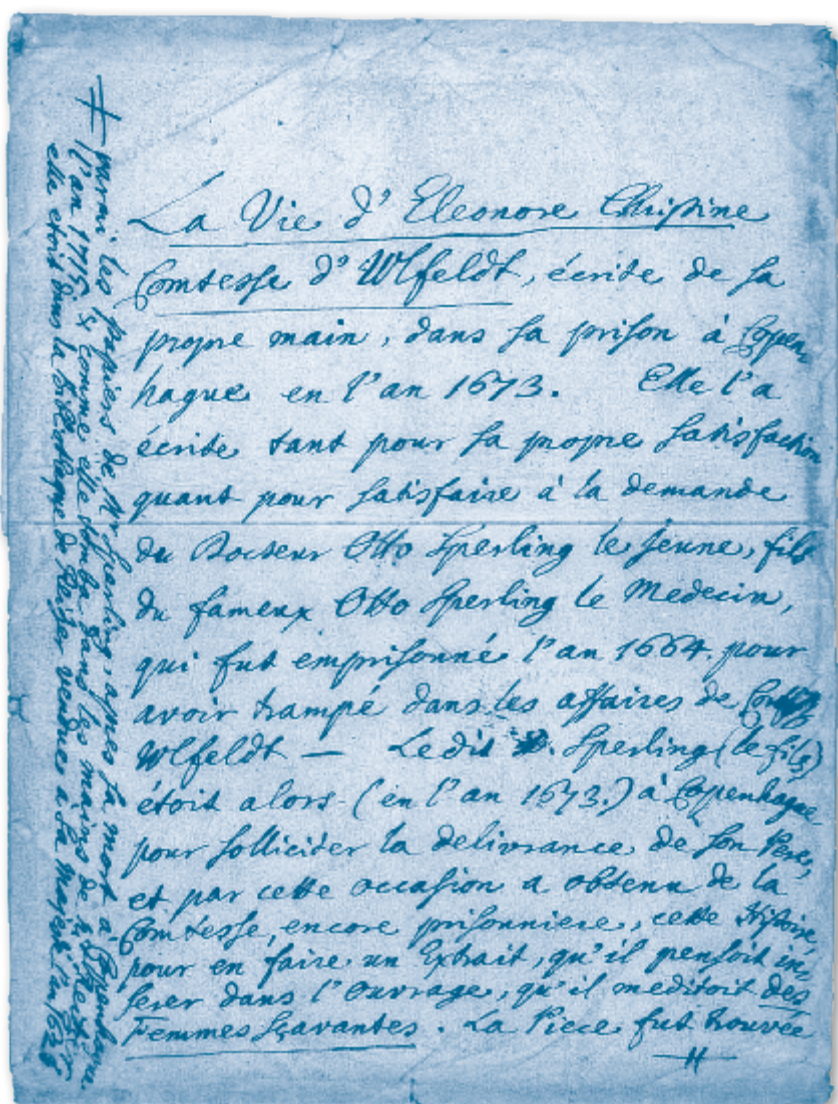 La Vie d'Eleonore Christine
Comtesse d'Wlfeldt, écrite de sa
propre main, dans sa prison à Copen
hague en l'an 1673. Elle l'a
écrite tant pour sa propre satisfaction
quant pour satisfaire à la demande
du Docteur Otto Sperling le jeune, fils
du fameux Otto Sperling le Medecin,
qui fut emprisonné l'an 1664. pour
avoir trampé dans les affaires de
Wlfeldt — Ledit Sperling (le fils)
étoit alors (en l'an 1673.) à Copenhague
pour solliciter la delivrance de son Pere,
et par cette occasion a obtenu de la
Comtesse, encore prisonniere, cette Histoire,
pour en faire un Extrait, qu'il pensoit in
serer dans l'ouvrage, qu'il meditoit des
Femmes Sçavantes. La Piece fut trouvée
parmi les papiers de Mr Sperling, apres sa mort à Copenhague
l'an 1715 & comme elle dans les mains de
elle étoit dans la de vendue à Sa Majesté l'an